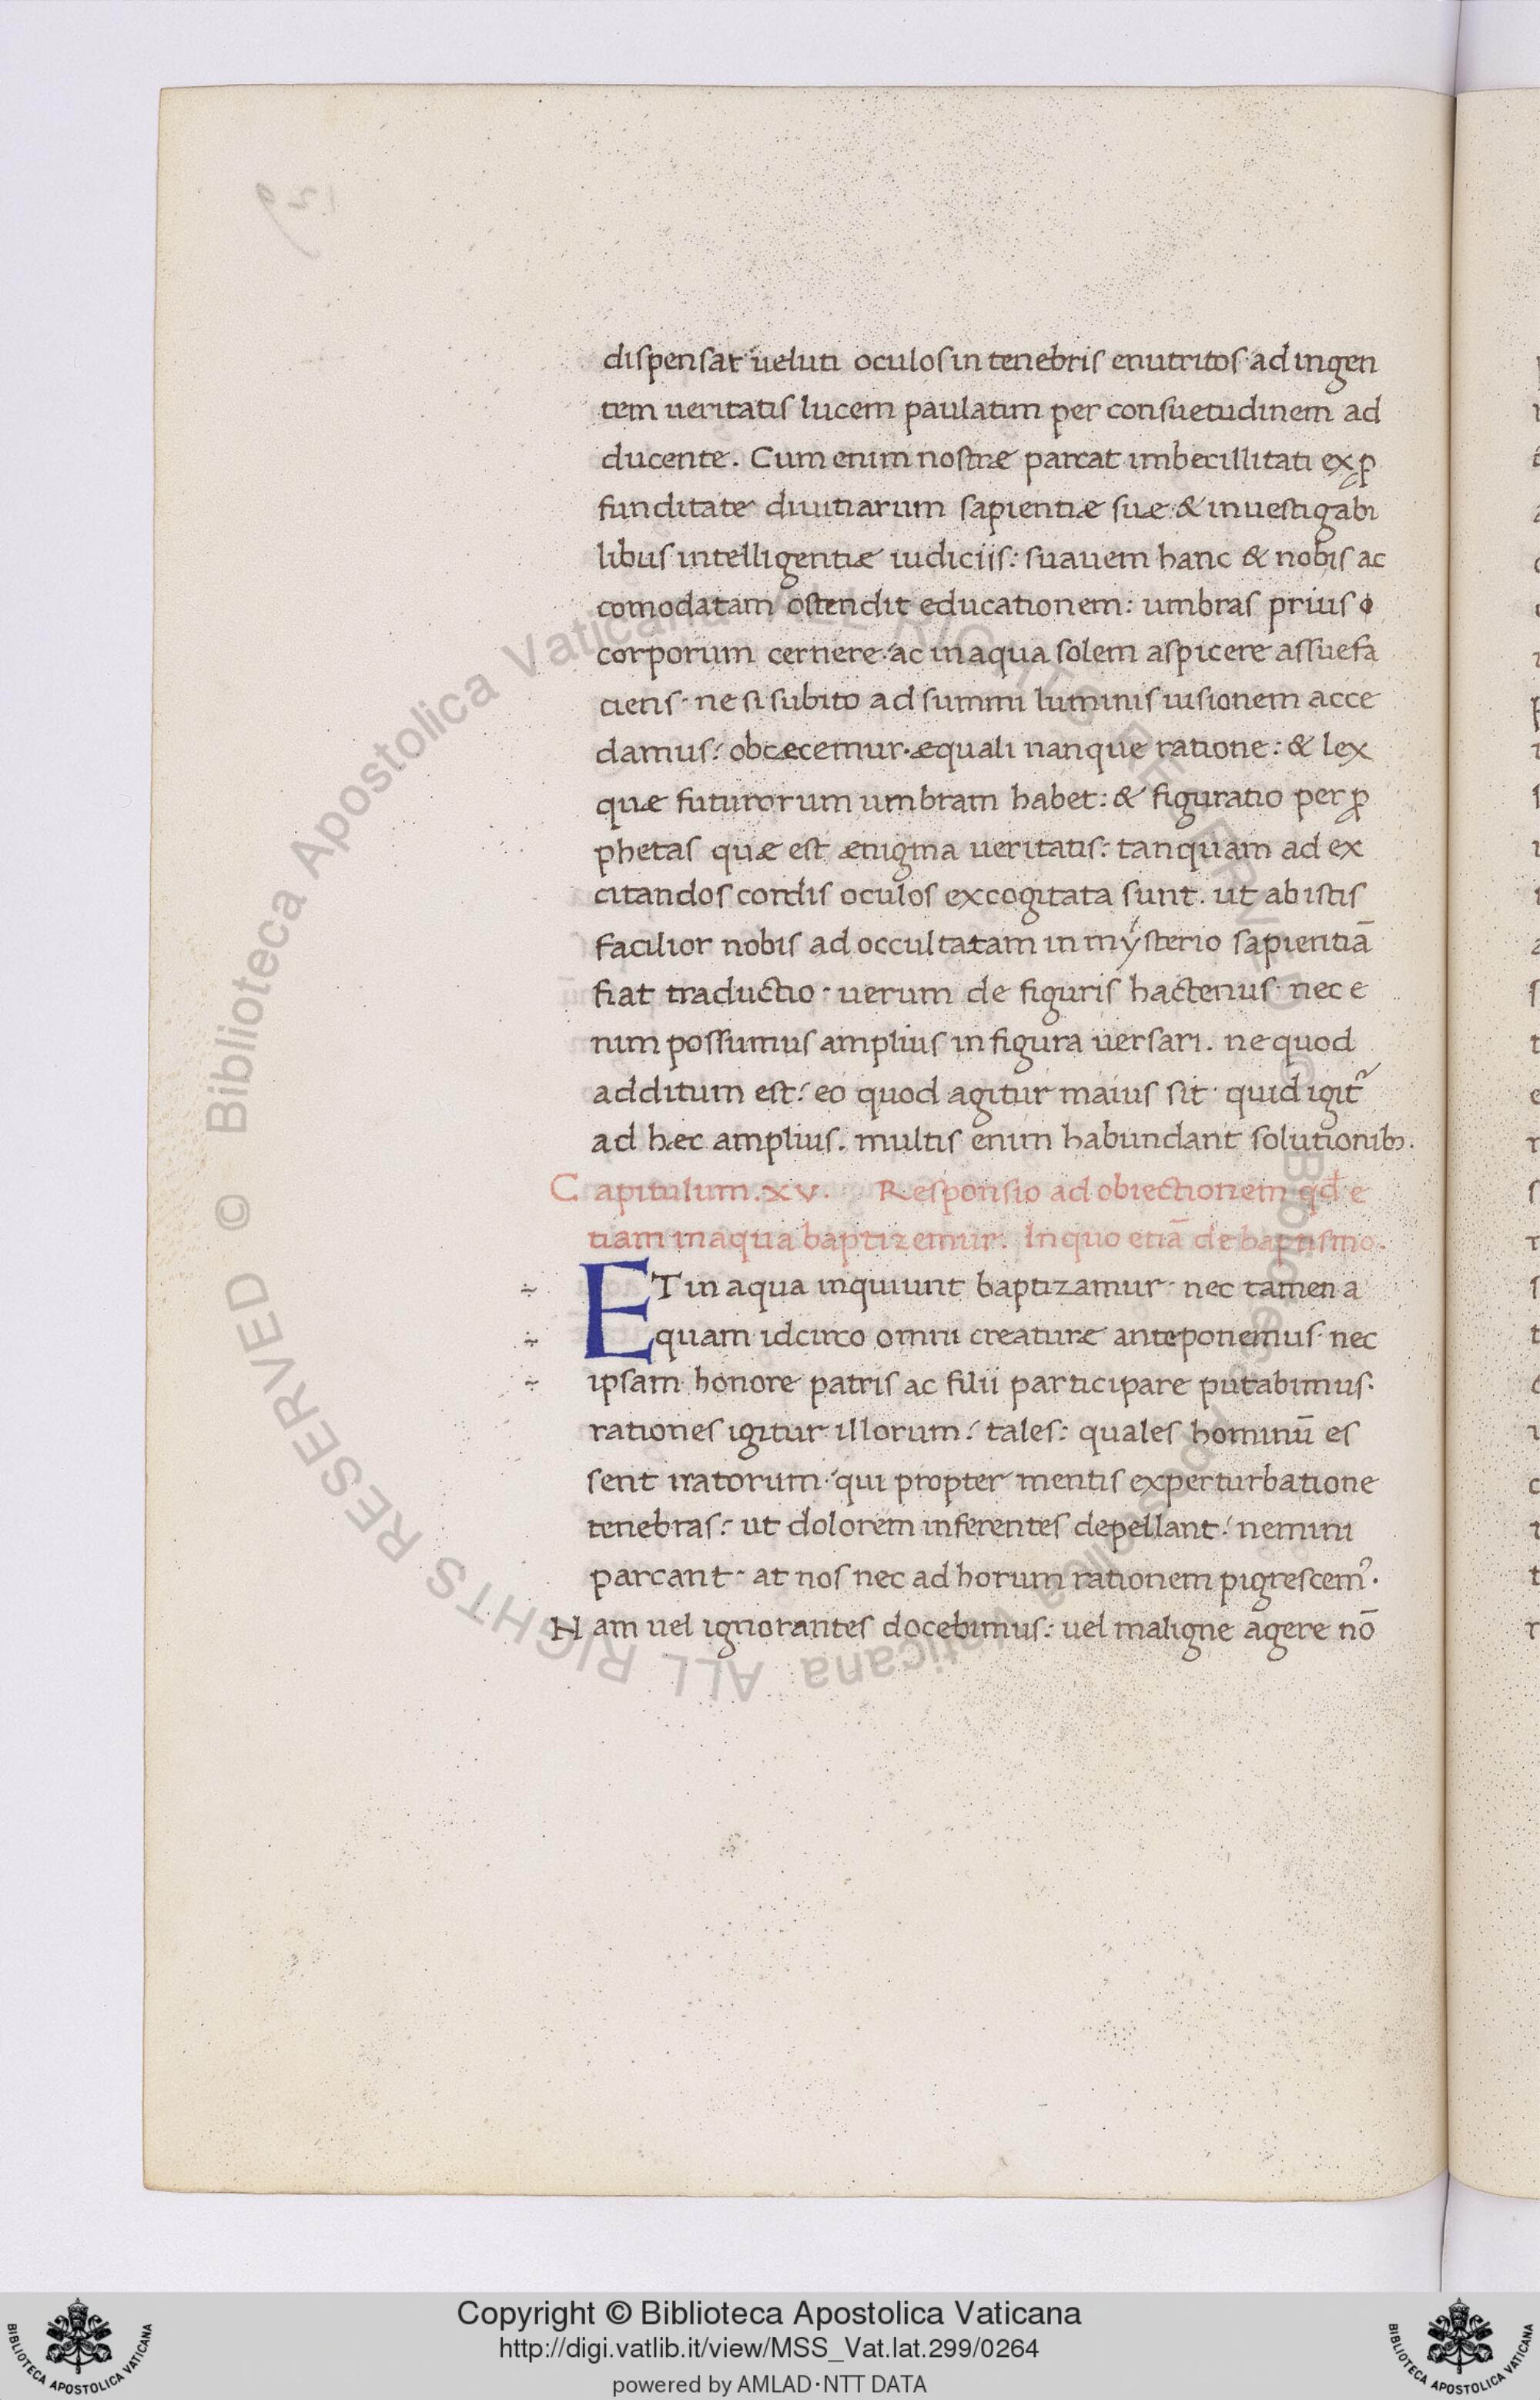 dispensat ueluti oculos in tenebris enutritos ad ingen
tem ueritatis lucem paulatim per consuetudinem ad
ducente. Cum enim nostræ parcat imbecillitati ex ꝓ
funditate diuitiarum sapientiæ suæ: & inuestigabi
libus intelligentiæ iudiciis: suauem hanc & nobis ac
comodatam ostendit educationem: umbras prius
corporum cernere: ac in aqua solem aspicere assuefa
ciens· ne si subito ad summi luminis uisionem acce
damus: obcæcemur. æquali nanque ratione: & lex
quæ futurorum umbram habet: & figuratio per ꝓ
phetas quæ est ænigma ueritatis: tanquam ad ex
citandos cordis oculos excogitata sunt. ut ab istis
facilior nobis ad occultatam in mysterio sapientiā
fiat traductio· uerum de figuris hactenus· nec e
nim possumus amplius in figura uersari. ne quod
additum est: eo quod agitur maius sit· quid igit᷑
ad hæc amplius. multis enim habundant solutionibꝫ.
Capitulum.xv. Responsio ad obiectionem qd̄ e
tiam in aqua baptizemur. In quo etiā de baptismo.
ET in aqua inquiunt baptizamur· nec tamen a
quam idcirco omni creaturæ anteponemus· nec
ipsam honore patris ac filii participare putabimus.
rationes igitur illorum: tales: quales hominū es
sent iratorum: qui propter mentis ex perturbatione
tenebras: ut dolorem inferentes depellant: nemini
parcant· at nos nec ad horum rationem pigrescemꝰ.
Nam uel ignorantes docebimus: uel maligne agere nō
© Biblioteca Apostolica Vaticana ALL RIGHTS RESERVED
© Biblioteca Apostolica Vaticana ALL RIGHTS RESERVED
Copyright © Biblioteca Apostolica Vaticana
http://digi.vatlib.it/view/MSS_Vat.lat.299/0264
powered by AMLAD·NTT DATA
BIBLIOTECA APOSTOLICA VATICANA
BIBLIOTECA APOSTOLICA VATICANA